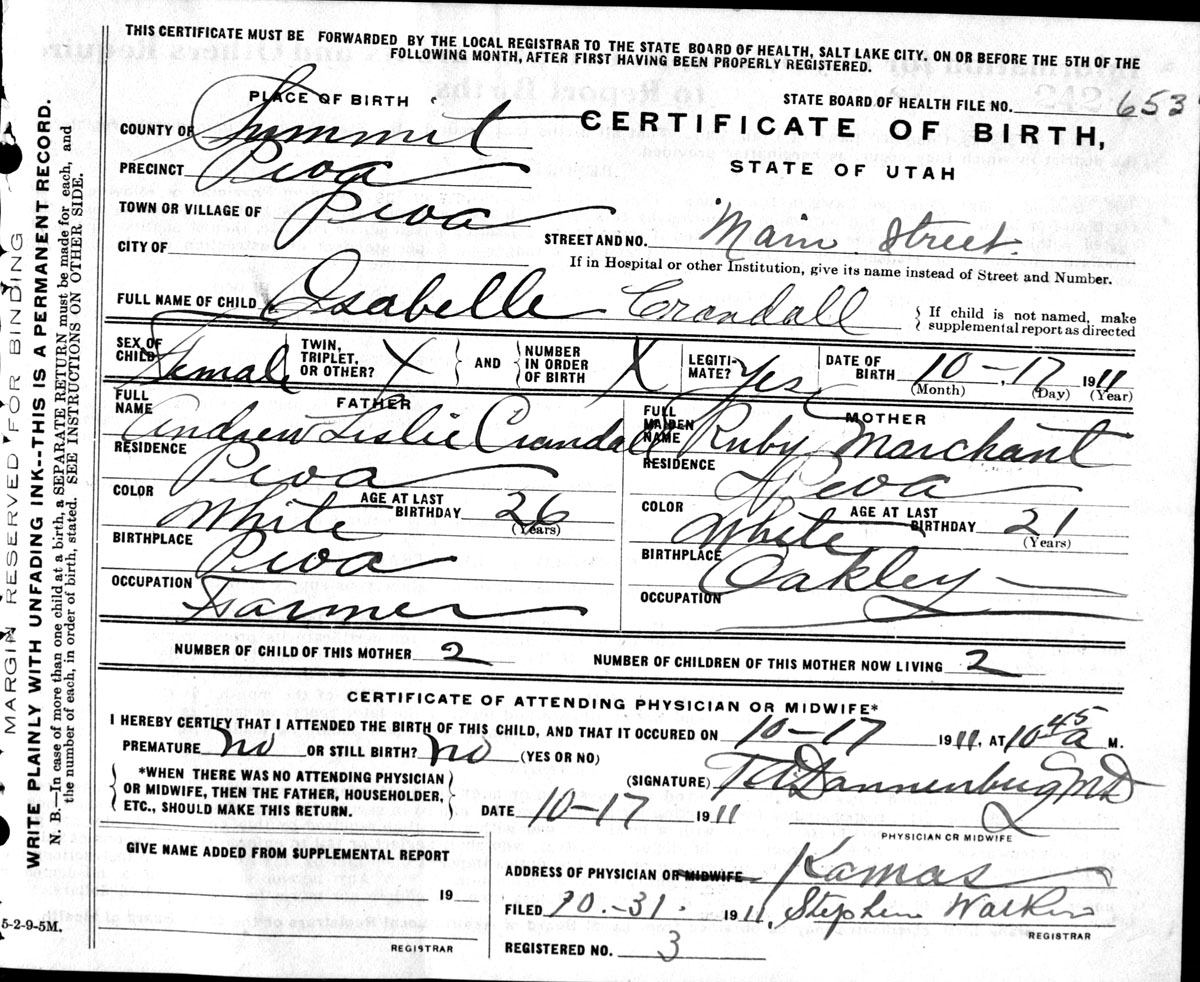 THIS CERTIFICATE MUST BE FORWARDED BY THE LOCAL REGISTRAR TO THE STATE BOARD OF HEALTH, SALT LAKE CITY, ON OR BEFORE THE 5TH OF THE
FOLLOWING MONTH, AFTER FIRST HAVING BEEN PROPERLY REGISTERED.
PLACE OF BIRTH
STATE BOARD OF HEALTH FILE NO. 653
COUNTY OF Summit
CERTIFICATE OF BIRTH,
PRECINCT Peoa
STATE OF UTAH
TOWN OR VILLAGE OF Peoa
STREET AND NO. Main Street.
CITY OF
If in Hospital or other Institution, give its name instead of Street and Number.
FULL NAME OF CHILD Isabelle Crandall
{ If child is not named, make
supplemental report as directed
SEX OF CHILD Female TWIN, TRIPLET, OR OTHER? X } AND { NUMBER IN ORDER OF BIRTH X LEGITI- MATE? Yes DATE OF BIRTH 10-17 1911
(Month) (Day) (Year)
FATHER
FULL NAME Andrew Leslie Crandall
RESIDENCE Peoa
COLOR White AGE AT LAST BIRTHDAY 26
(Years)
BIRTHPLACE Peoa
OCCUPATION Farmer
MOTHER
FULL MAIDEN NAME Ruby Marchant
RESIDENCE Peoa
COLOR White AGE AT LAST BIRTHDAY 21
(Years)
BIRTHPLACE Oakley
OCCUPATION
NUMBER OF CHILD OF THIS MOTHER 2 NUMBER OF CHILDREN OF THIS MOTHER NOW LIVING 2
CERTIFICATE OF ATTENDING PHYSICIAN OR MIDWIFE*
I HEREBY CERTIFY THAT I ATTENDED THE BIRTH OF THIS CHILD, AND THAT IT OCCURED ON 10-17 1911, AT 10 45 a M.
PREMATURE no OR STILL BIRTH? no (YES OR NO)
*WHEN THERE WAS NO ATTENDING PHYSICIAN
OR MIDWIFE, THEN THE FATHER, HOUSEHOLDER,
ETC., SHOULD MAKE THIS RETURN.
(SIGNATURE) Dannenburg MD
DATE 10-17 1911
PHYSICIAN OR MIDWIFE
GIVE NAME ADDED FROM SUPPLEMENTAL REPORT
19
REGISTRAR
ADDRESS OF PHYSICIAN OR MIDWIFE Kamas
FILED 10.-31. 1911, Stephen Walker
REGISTRAR
REGISTERED NO. 3
MARGIN RESERVED FOR BINDING
WRITE PLAINLY WITH UNFADING INK--THIS IS A PERMANENT RECORD.
N. B.—In case of more than one child at a birth, a SEPARATE RETURN must be made for each, and
the number of each, in order of birth, stated. SEE INSTRUCTIONS ON OTHER SIDE.
5-2-9-5M.